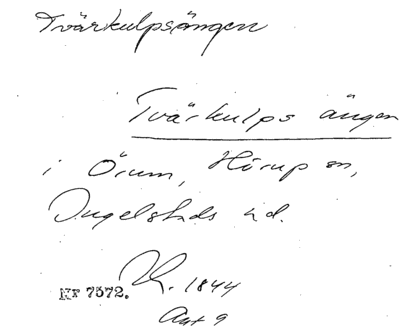 Tvärkulpsängen
Tvärkulps ängen
i Örum, Hörup sn,
Ingelstads hd.
Nr 7572. 1844
Akt 9